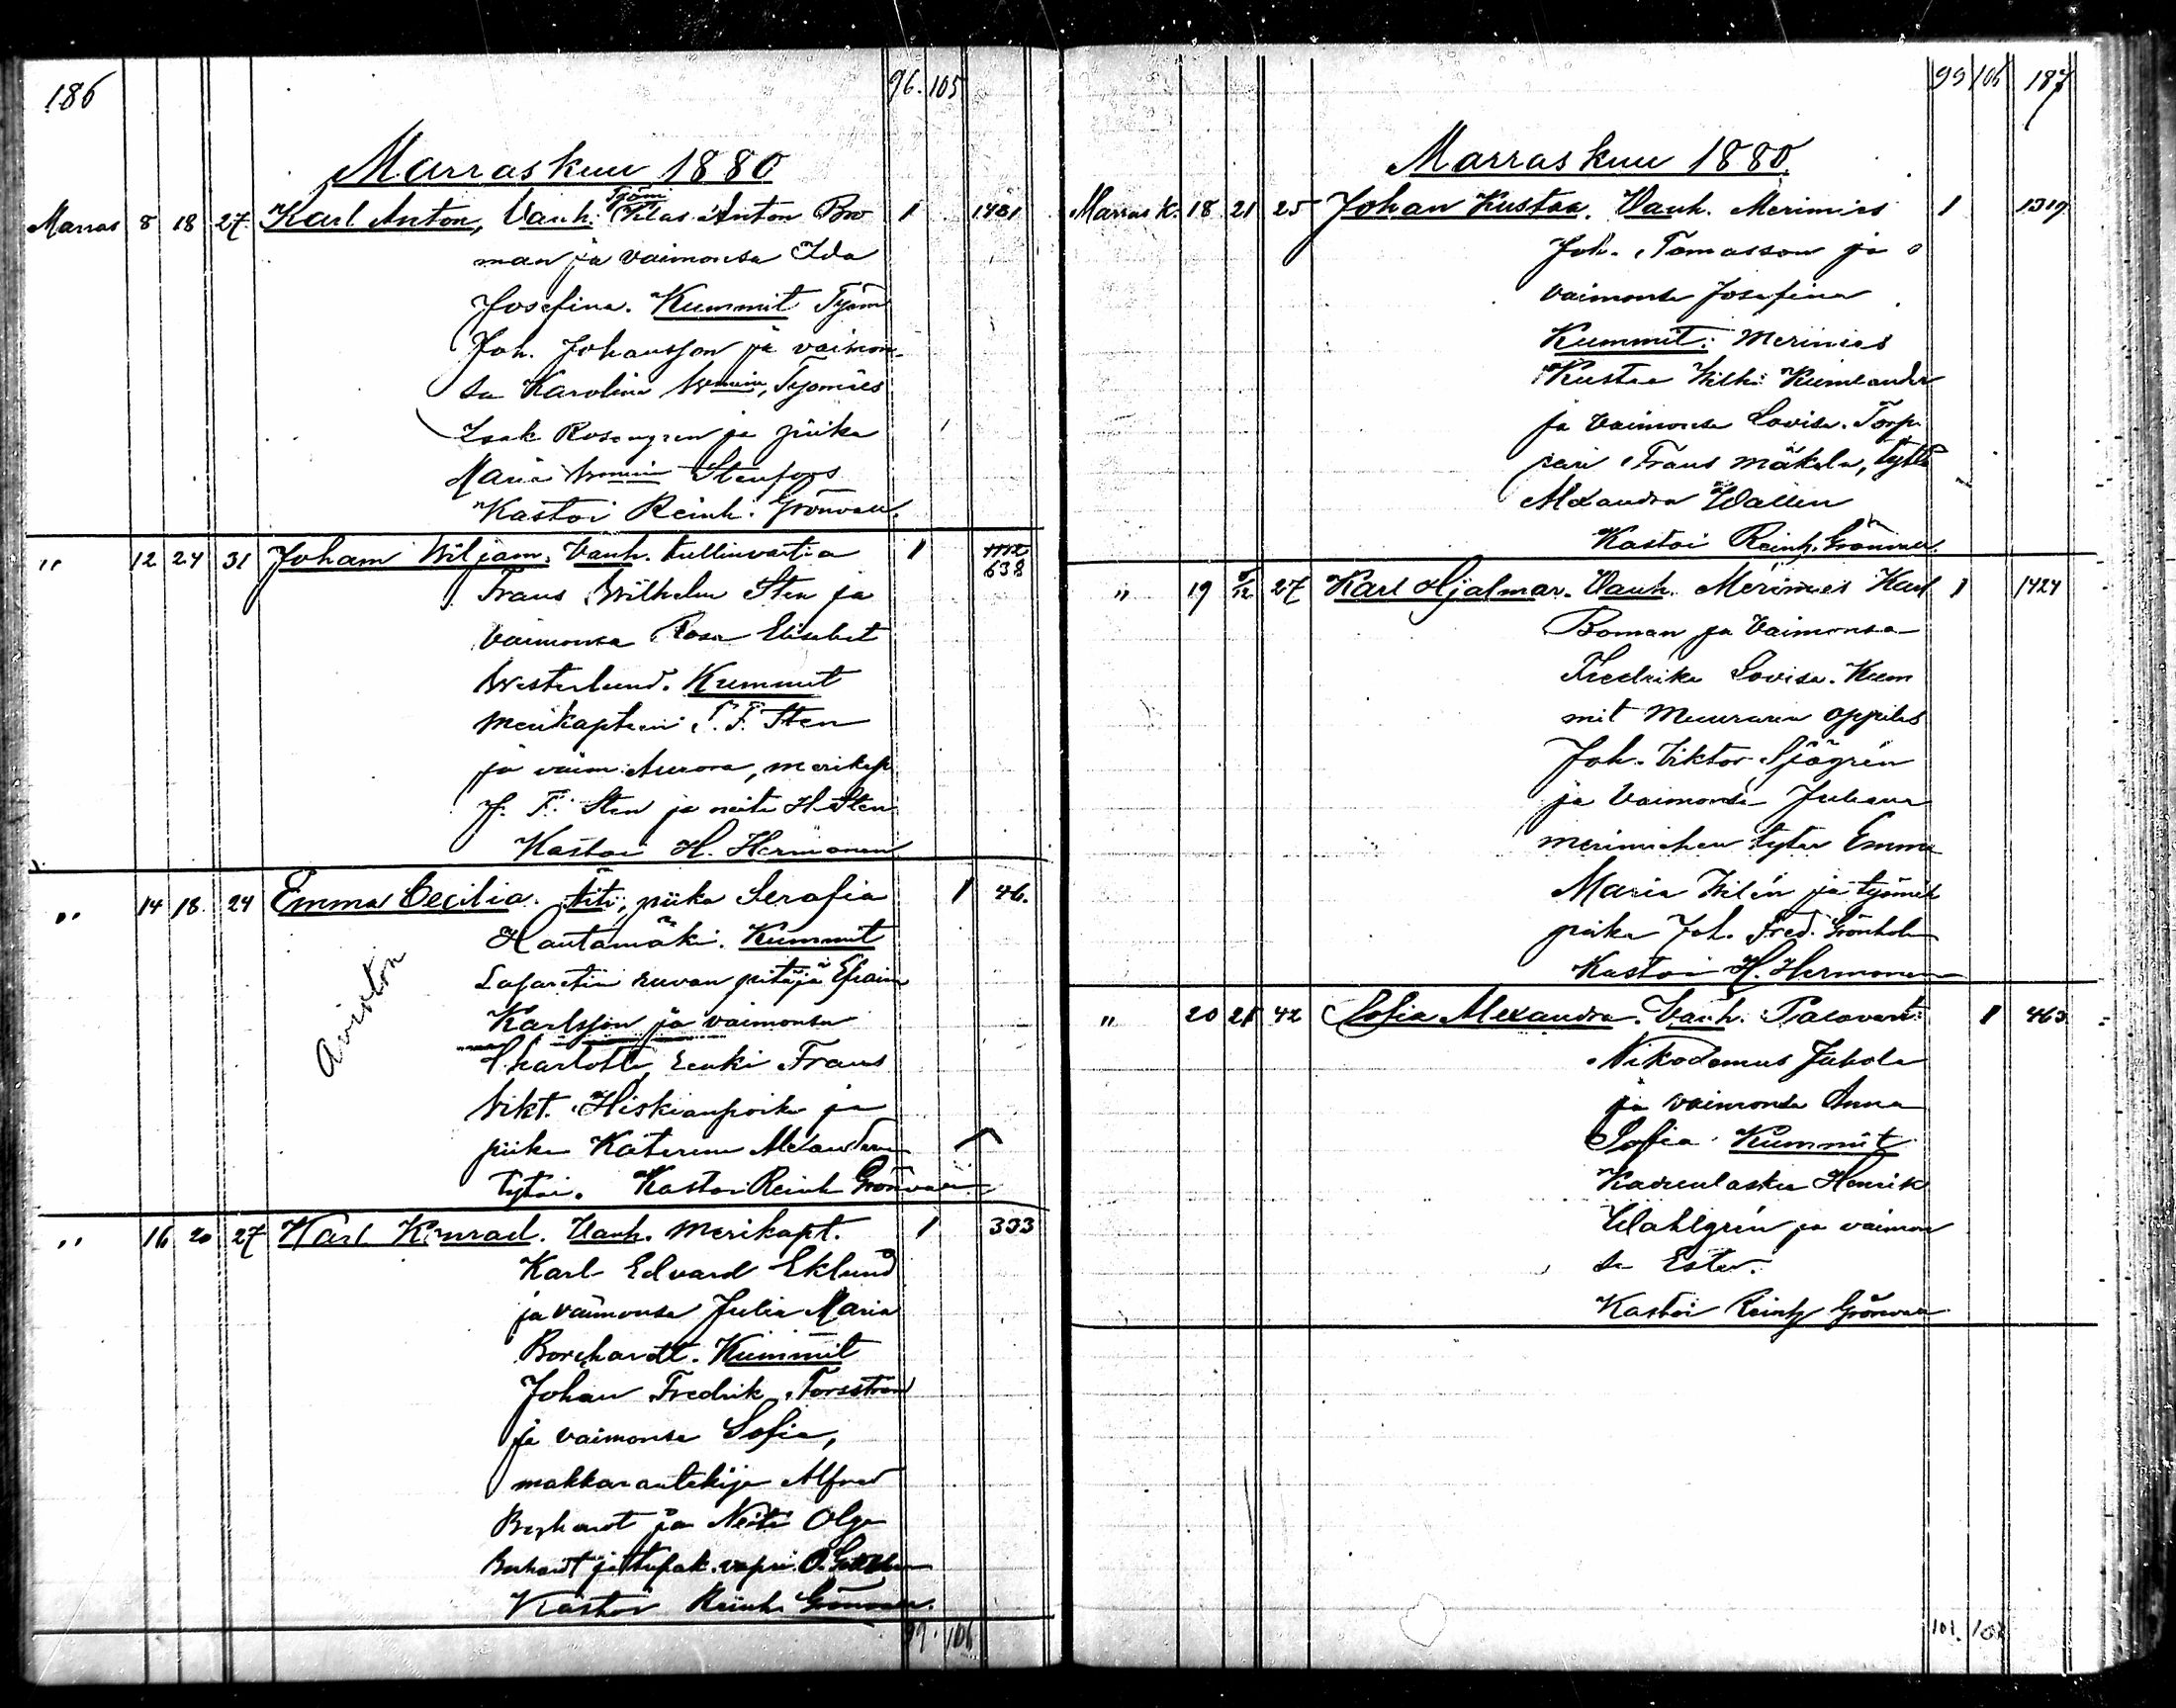 186 96. 105
Marraskuu 1880
Työm
Marras 8 18 27. Karl Anton, Vanh: Anton Bro 1 1481
man ja vaimonsa Ida
Josefina. Kummit Työm
Joh. Johansson ja vaimon-
sa Karolina Työmies
Isak Rosengren ja piika
Maria Stenfors
Kastoi Reinh. Grönvall.
" 12 24 31 Joham Wiljam. Vanh. tullinvartia 1
638
Frans Wilhelm Sten ja
vaimonsa Rosa Elisabet
Westerlund. Kummit
Merikapteeni F. Sten
ja vaim. Aurora, merikap
J. F. Sten ja neiti H. Sten
Kastoi H. Hermonen
" 14 18. 24 Emma Cecilia. Äiti, piika Serafia 1 46.
Hautamäki. Kummit
Lasaretin ruvan pitäjä Efraim
Karlsson ja vaimonsa
Avioton
Charlotta, renki Frans
Vikt. Hiskianpoika ja
piika Katerina Alexanderin
tytär. Kastoi Reinh Grönvall
" 16 20 27 Karl Konrad. Vanh. Merikapt. 1 333
Karl Edvard Eklund
ja vaimonsa Julia Maria
Borchardt. Kummit
Johan Fredrik Forsström
ja vaimonsa Sofia,
makkarantekijä Alfred
Borchardt ja Neiti Olga
Borchardt ja tupak. O.
Kastoi Reinh Grönvall.
99. 106
99 106 187
Marraskuu 1880.
Marrask. 18 21 25 Johan Kustaa. Vanh. Merimies 1 1319
Joh. Tomasson ja
vaimonsa Josefina
Kummit: Merimies
Kustaa Wilh: Kumlander
ja vaimonsa Lovisa. Torp
pari Frans Mäkelä, tyttö
Alexandra Wallen
Kastoi Reinh. Grönvall.
" 19 5/12 27 Karl Hjalmar. Vanh. Merimies Karl 1 1424
Boman ja Vaimonsa
Fredrika Lovisa. Kum
mit Muurarin oppilas
Joh. Viktor Sjögrén
ja Vaimonsa Juliana
merimiehen tytär Emma
Maria Wilén ja työmih
poika Joh. Fred. Grönholm
Kastoi H. Hermonen
" 20 21 42 Sofia Alexandra. Vanh. Palovart: 1 463
Nikodemus Juhola
ja vaimonsa Anna
Sofia. Kummit
Kadunlaskia Henrik
Wahlgrén ja vaimon
sa Ester.
Kastoi Reinh Grönvall
101. 107